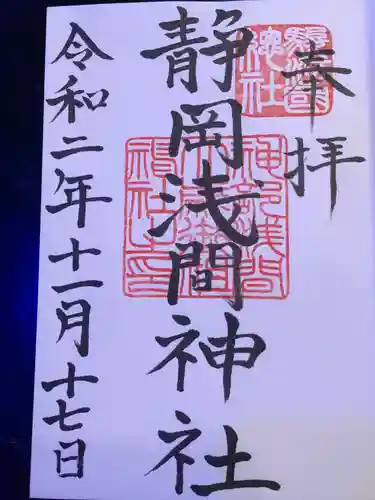 奉拝
静岡浅間神社
令和二年十一月十七日